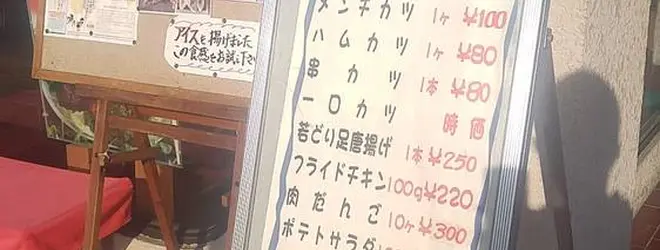 アイスを揚げました
この食感をお試し下さい
メンチカツ 1ヶ ¥100
ハムカツ 1ヶ ¥80
串カツ 1本 ¥80
一口カツ 時価
若どり足唐揚げ 1本 ¥250
フライドチキン 100g ¥220
肉だんご 10ヶ ¥300
ポテトサラダ